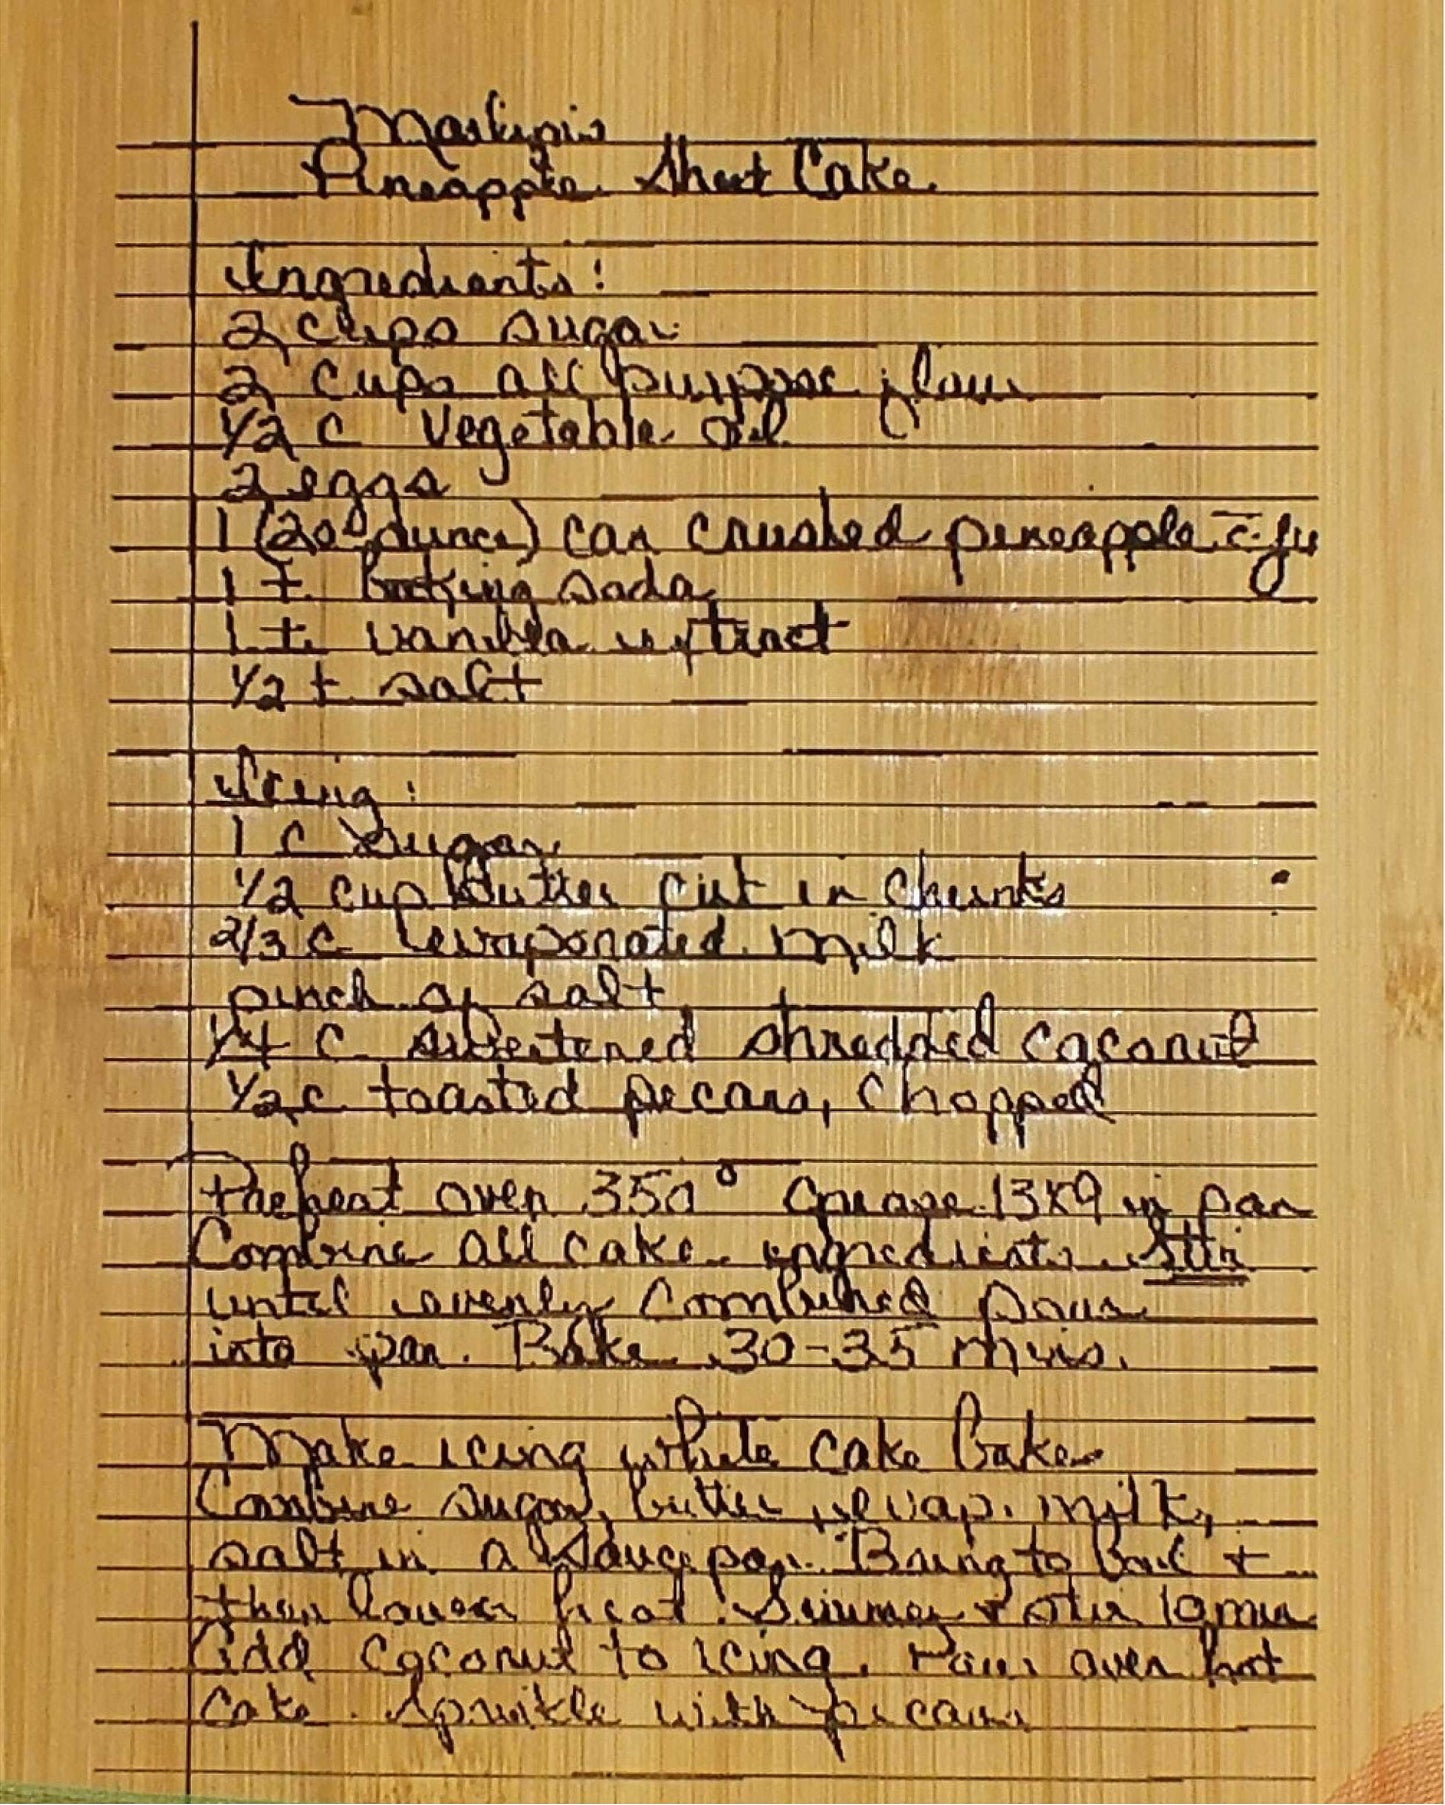 Pineapple Sheet Cake
Ingredients:
2 cups sugar
2 cups all purpose flour
1/2 c vegetable oil
2 eggs
1 (20 ounce) can crushed pineapple c̄ ju
1 t. baking soda
1 t. vanilla extract
1/2 t salt
Icing:
1 c sugar
1/2 cup butter cut in chunks
2/3 c evaporated milk
pinch of salt
1/4 c sweetened shredded coconut
1/2 c toasted pecans, chopped
Preheat oven 350° Grease 13x9 in pan
Combine all cake ingredients. Stir
until evenly combined pour
into pan. Bake 30-35 mins.
Make icing while cake bakes
Combine sugar, butter, evap. milk,
salt in a saucepan. Bring to boil +
then lower heat. Simmer + stir 10 min
Add coconut to icing. Pour over hot
cake. Sprinkle with pecans